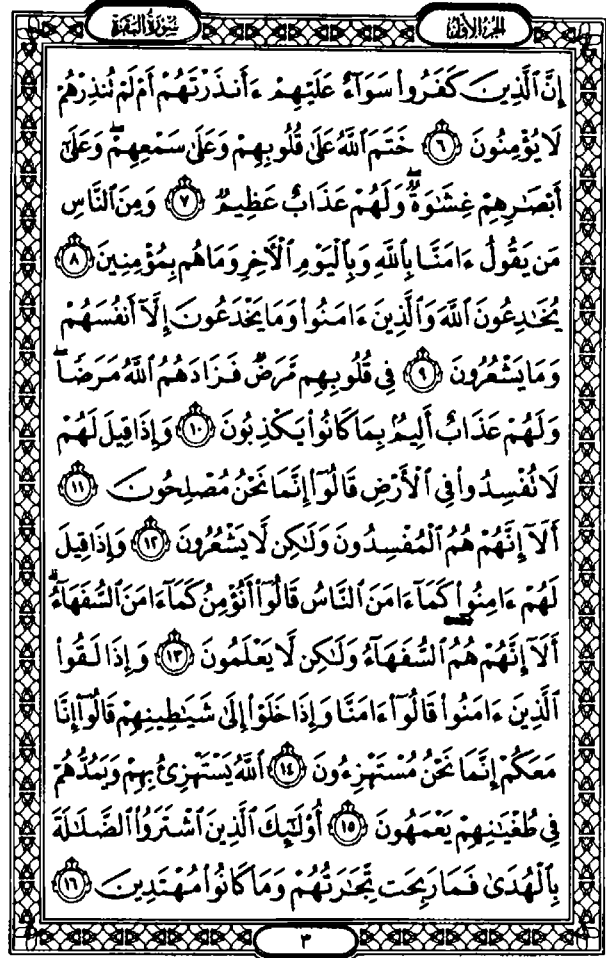 الجزء الأول
سورة البقرة
إِنَّ ٱلَّذِينَ كَفَرُوا۟ سَوَآءٌ عَلَيْهِمْ ءَأَنذَرْتَهُمْ أَمْ لَمْ تُنذِرْهُمْ
لَا يُؤْمِنُونَ ﴿٦﴾ خَتَمَ ٱللَّهُ عَلَىٰ قُلُوبِهِمْ وَعَلَىٰ سَمْعِهِمْ ۖ وَعَلَىٰٓ
أَبْصَٰرِهِمْ غِشَٰوَةٌ ۖ وَلَهُمْ عَذَابٌ عَظِيمٌ ﴿٧﴾ وَمِنَ ٱلنَّاسِ
مَن يَقُولُ ءَامَنَّا بِٱللَّهِ وَبِٱلْيَوْمِ ٱلْءَاخِرِ وَمَا هُم بِمُؤْمِنِينَ ﴿٨﴾
يُخَٰدِعُونَ ٱللَّهَ وَٱلَّذِينَ ءَامَنُوا۟ وَمَا يَخْدَعُونَ إِلَّآ أَنفُسَهُمْ
وَمَا يَشْعُرُونَ ﴿٩﴾ فِى قُلُوبِهِم مَّرَضٌ فَزَادَهُمُ ٱللَّهُ مَرَضًا ۖ
وَلَهُمْ عَذَابٌ أَلِيمٌۢ بِمَا كَانُوا۟ يَكْذِبُونَ ﴿١٠﴾ وَإِذَا قِيلَ لَهُمْ
لَا تُفْسِدُوا۟ فِى ٱلْأَرْضِ قَالُوٓا۟ إِنَّمَا نَحْنُ مُصْلِحُونَ ﴿١١﴾
أَلَآ إِنَّهُمْ هُمُ ٱلْمُفْسِدُونَ وَلَٰكِن لَّا يَشْعُرُونَ ﴿١٢﴾ وَإِذَا قِيلَ
لَهُمْ ءَامِنُوا۟ كَمَآ ءَامَنَ ٱلنَّاسُ قَالُوٓا۟ أَنُؤْمِنُ كَمَآ ءَامَنَ ٱلسُّفَهَآءُ ۗ
أَلَآ إِنَّهُمْ هُمُ ٱلسُّفَهَآءُ وَلَٰكِن لَّا يَعْلَمُونَ ﴿١٣﴾ وَإِذَا لَقُوا۟
ٱلَّذِينَ ءَامَنُوا۟ قَالُوٓا۟ ءَامَنَّا وَإِذَا خَلَوْا۟ إِلَىٰ شَيَٰطِينِهِمْ قَالُوٓا۟ إِنَّا
مَعَكُمْ إِنَّمَا نَحْنُ مُسْتَهْزِءُونَ ﴿١٤﴾ ٱللَّهُ يَسْتَهْزِئُ بِهِمْ وَيَمُدُّهُمْ
فِى طُغْيَٰنِهِمْ يَعْمَهُونَ ﴿١٥﴾ أُو۟لَٰٓئِكَ ٱلَّذِينَ ٱشْتَرَوُا۟ ٱلضَّلَٰلَةَ
بِٱلْهُدَىٰ فَمَا رَبِحَت تِّجَٰرَتُهُمْ وَمَا كَانُوا۟ مُهْتَدِينَ ﴿١٦﴾
٣